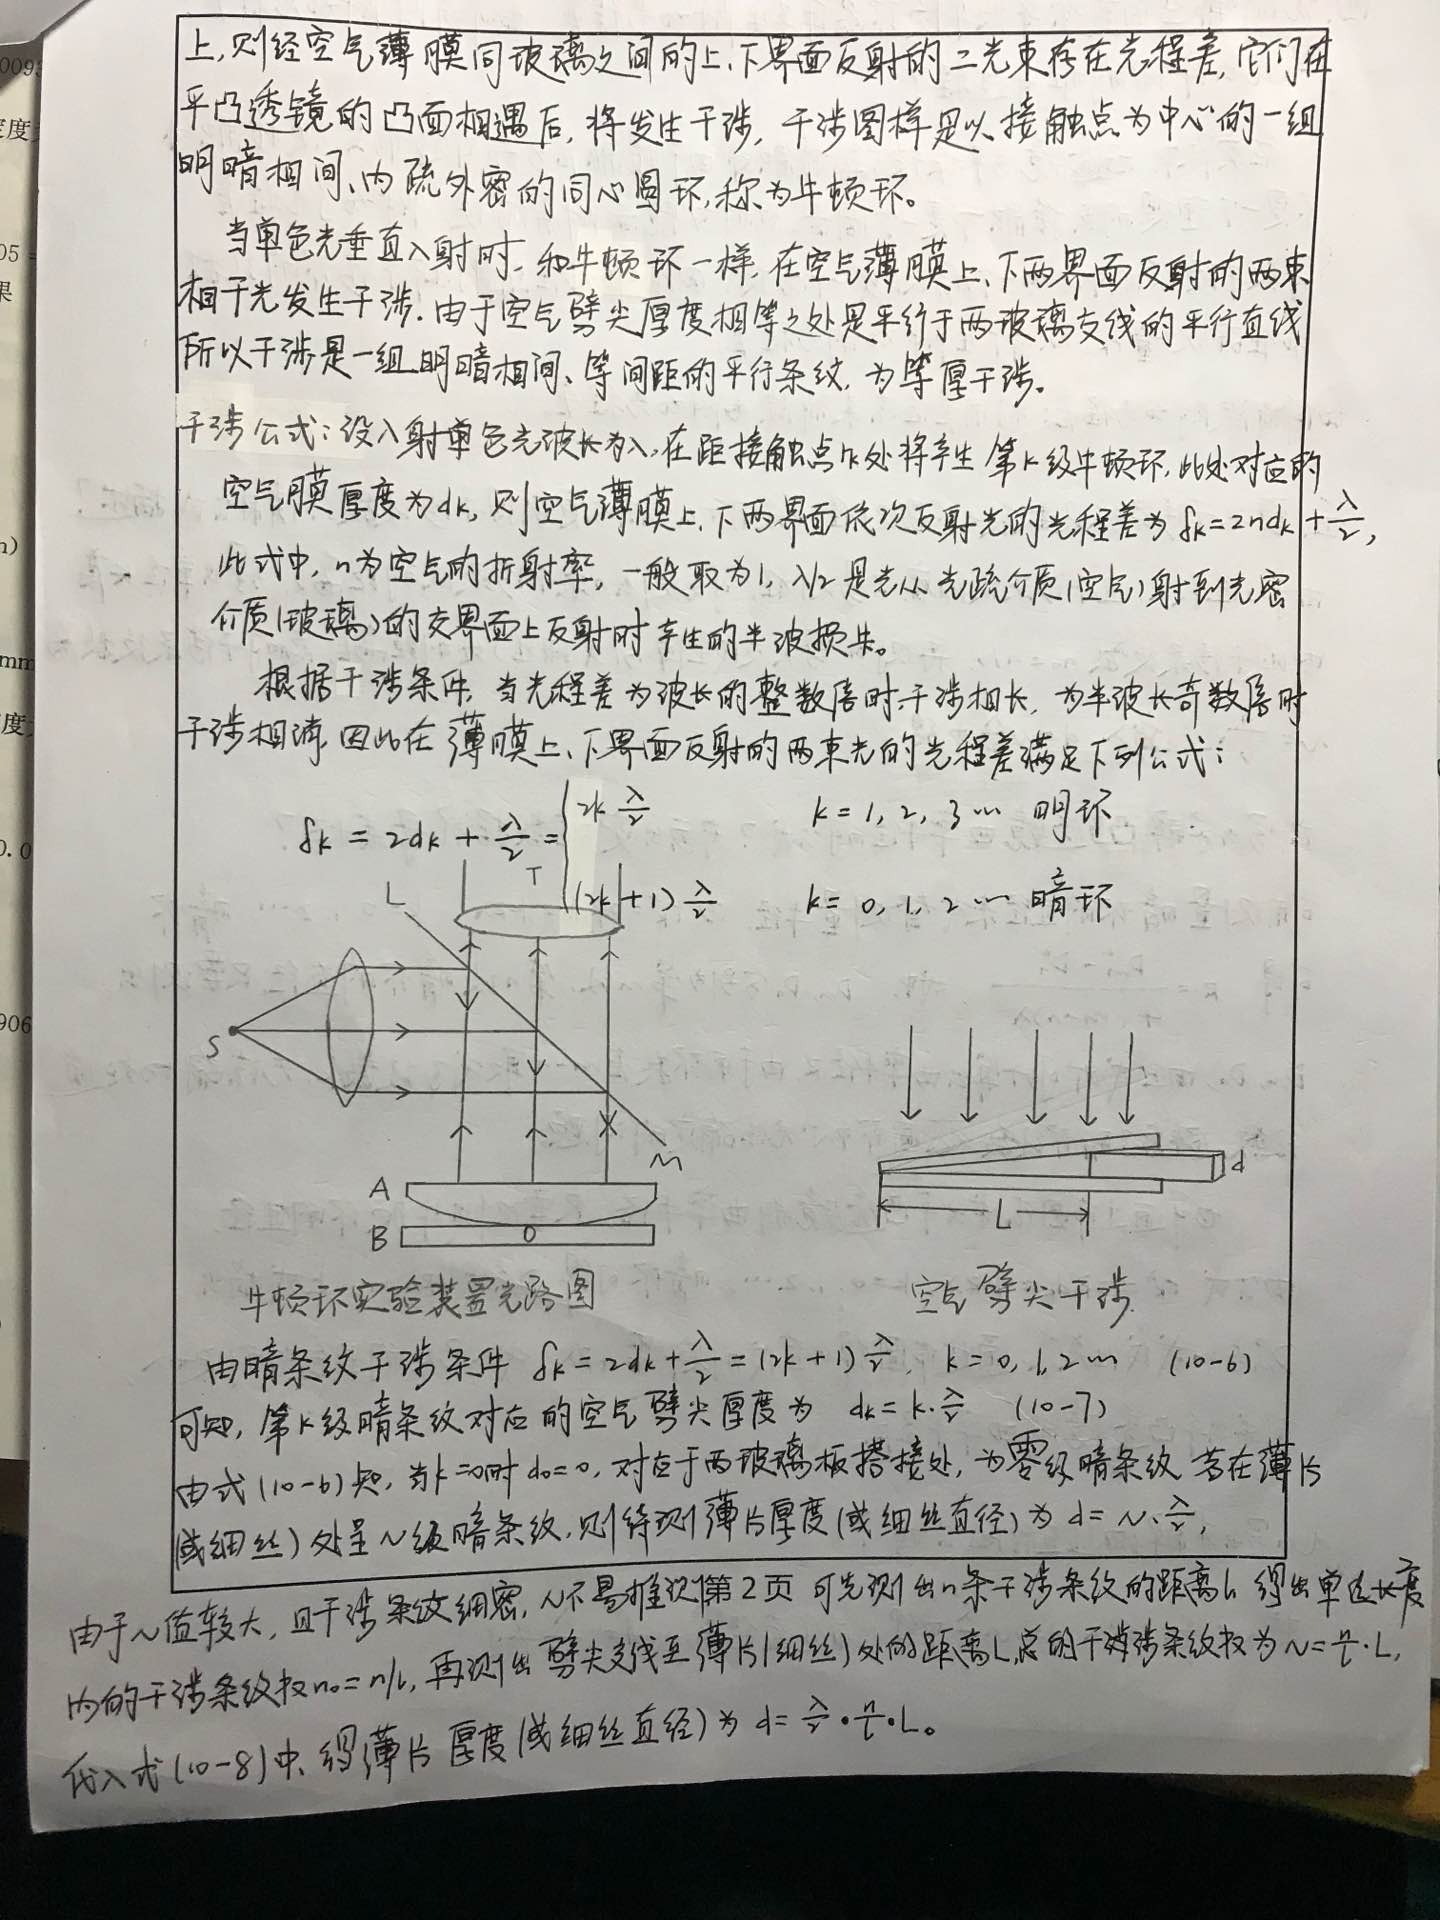 上,则经空气薄膜同玻璃之间的上、下界面反射的二光束存在光程差,它们在
平凸透镜的凸面相遇后,将发生干涉,干涉图样是以接触点为中心的一组
明暗相间、内疏外密的同心圆环,称为牛顿环。
当单色光垂直入射时,和牛顿环一样,在空气薄膜上、下两界面反射的两束
相干光发生干涉.由于空气劈尖厚度相等之处是平行于两玻璃交线的平行直线
所以干涉是一组明暗相间、等间距的平行条纹,为等厚干涉。
干涉公式:设入射单色光波长为λ,在距接触点rk处将产生第k级牛顿环,此处对应的
空气膜厚度为dk,则空气薄膜上、下两界面依次反射光的光程差为 δk=2ndk+λ/2,
此式中,n为空气的折射率,一般取为1,λ/2是光从光疏介质(空气)射到光密
介质(玻璃)的交界面上反射时产生的半波损失。
根据干涉条件,当光程差为波长的整数倍时干涉相长,为半波长奇数倍时
干涉相消,因此在薄膜上、下界面反射的两束光的光程差满足下列公式:
2k λ/2 k=1,2,3… 明环
δk = 2dk + λ/2 =
(2k+1) λ/2 k=0,1,2… 暗环
T
L
S
M
A
B
O
d
L
牛顿环实验装置光路图
空气劈尖干涉
由暗条纹干涉条件 δk=2dk+λ/2=(2k+1)λ/2, k=0,1,2… (10-6)
可知,第k级暗条纹对应的空气劈尖厚度为 dk=k·λ/2 (10-7)
由式(10-6)知,当k=0时d0=0,对应于两玻璃板搭接处,为零级暗条纹.若在薄片
(或细丝)处呈N级暗条纹,则待测薄片厚度(或细丝直径)为 d=N·λ/2,
第2页
由于N值较大,且干涉条纹细密,N不易推测 可先测出n条干涉条纹的距离l,得出单位长度
内的干涉条纹数n0=n/l,再测出劈尖交线至薄片(细丝)处的距离L,总的干涉条纹数为N=n/l·L,
代入式(10-8)中,得薄片厚度(或细丝直径)为 d=λ/2·n/l·L。